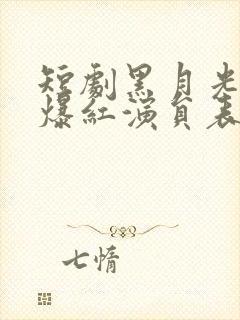 短劇黑月光
爆紅演員表
七情